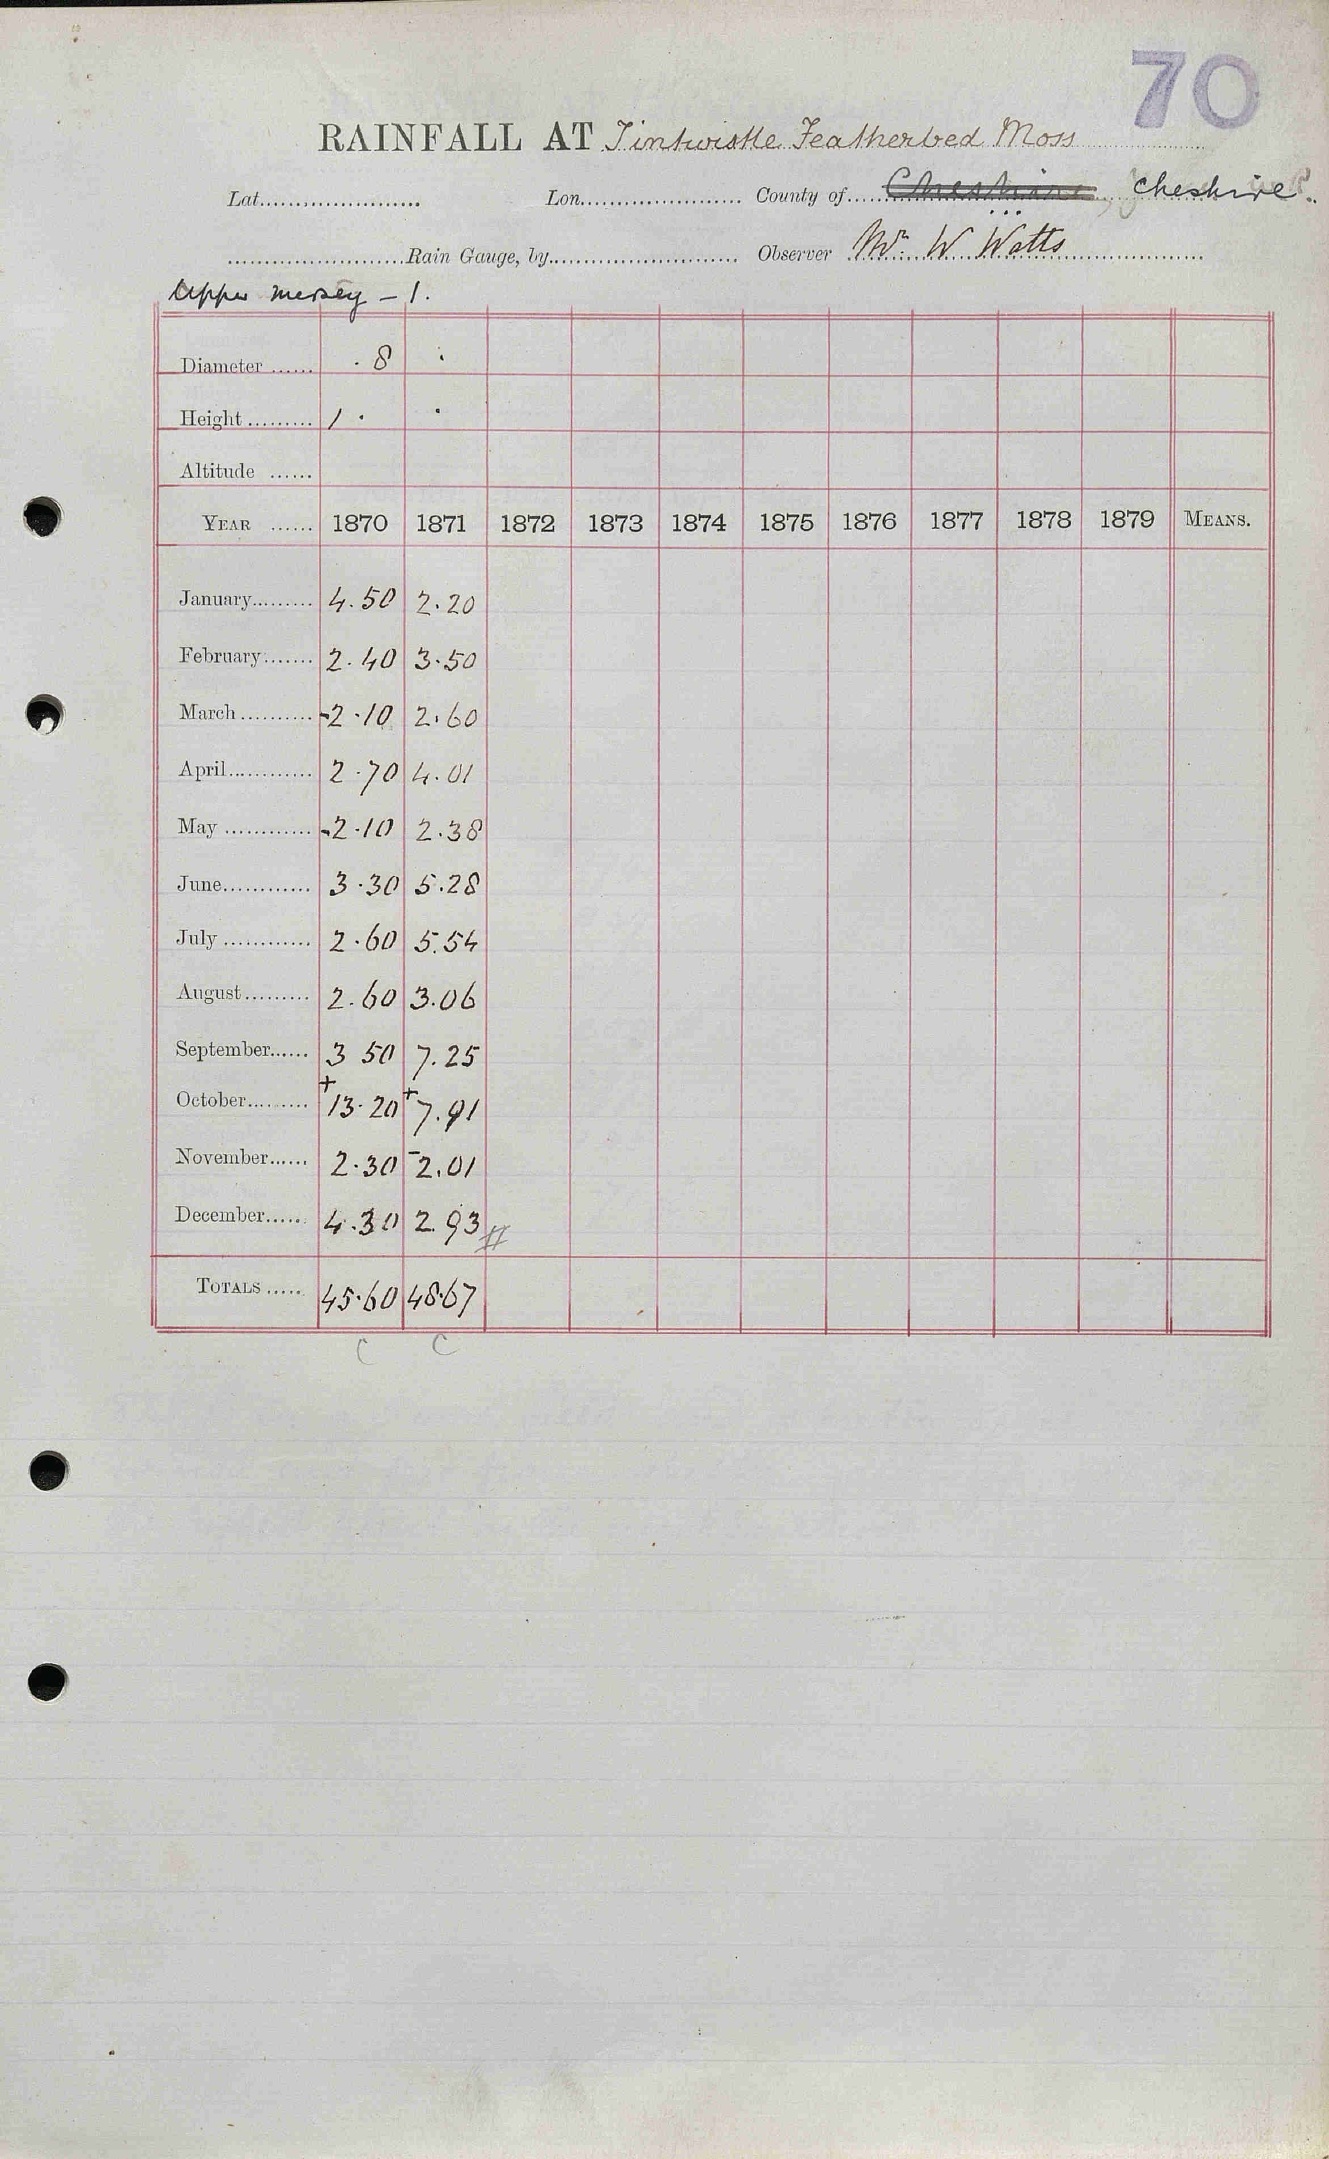 70
RAINFALL AT Tintwistle Featherbed Moss
Lat. Lon. County of Cheshire, Cheshire.
Rain Gauge, by Observer Mr. W Watts
Upper Mersey - 1.
Diameter ...... . 8 .
Height ......... 1 . .
Altitude ......
YEAR ...... 1870 1871 1872 1873 1874 1875 1876 1877 1878 1879 MEANS.
January......... 4.50 2.20
February....... 2.40 3.50
March.......... -2.10 2.60
April............ 2.70 4.01
May ............ -2.10 2.38
June............ 3.30 5.28
July ............ 2.60 5.54
August......... 2.60 3.06
September...... 3 50 7.25
October......... +13.20 +7.91
November...... 2.30 -2.01
December...... 4.30 2.93 //
TOTALS ..... 45.60 48.67
C C